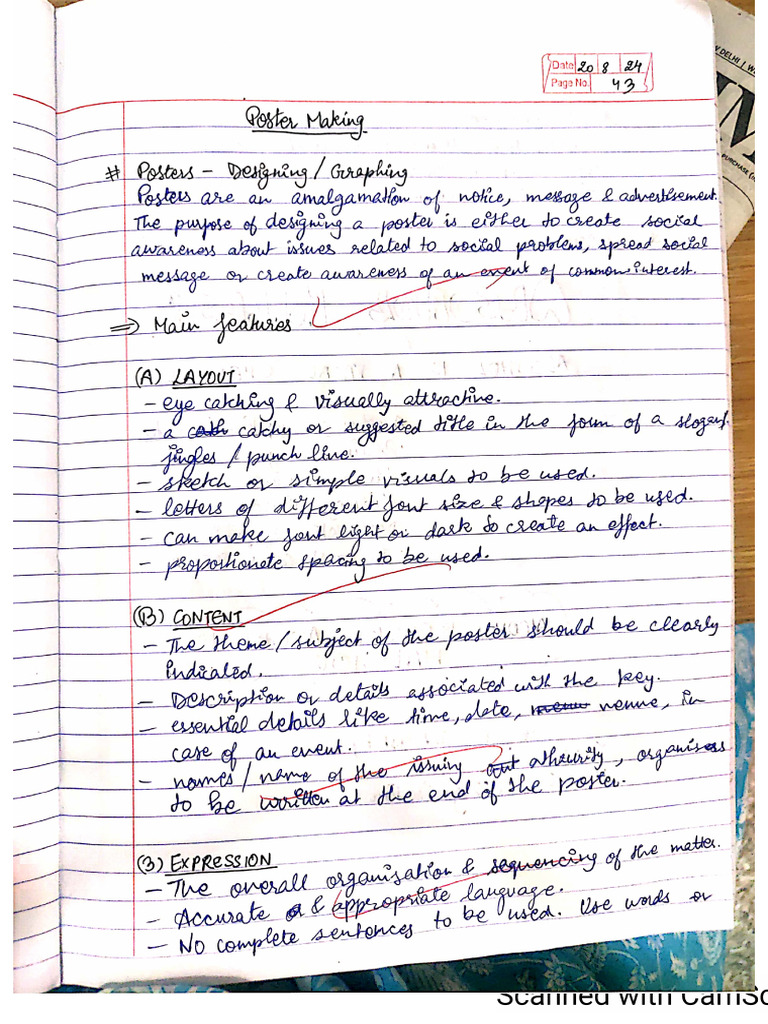 Date 20 8 24
Page No. 43
Poster Making
# Posters - Designing/Graphing
Posters are an amalgamation of notice, message & advertisement.
The purpose of designing a poster is either to create social
awareness about issues related to social problems, spread social
message or create awareness of an event of common interest.
⇒ Main features
(A) LAYOUT
- eye catching & visually attractive.
- a catchy or suggested title in the form of a slogan,
jingles / punch line.
- sketch or simple visuals to be used.
- letters of different font size & shapes to be used.
- can make font light or dark to create an effect.
- proportionate spacing to be used.
(B) CONTENT
- The theme/subject of the poster should be clearly
indicated.
- Description or details associated with the key.
- essential details like time, date, venue, in
case of an event.
- names/name of the issuing athourity, organisers
to be written at the end of the poster.
(3) EXPRESSION
- The overall organisation & sequencing of the matter.
- Accurate & appropriate language.
- No complete sentences to be used. Use words or
DELHI
PURCHASE
Scanned with CamSc